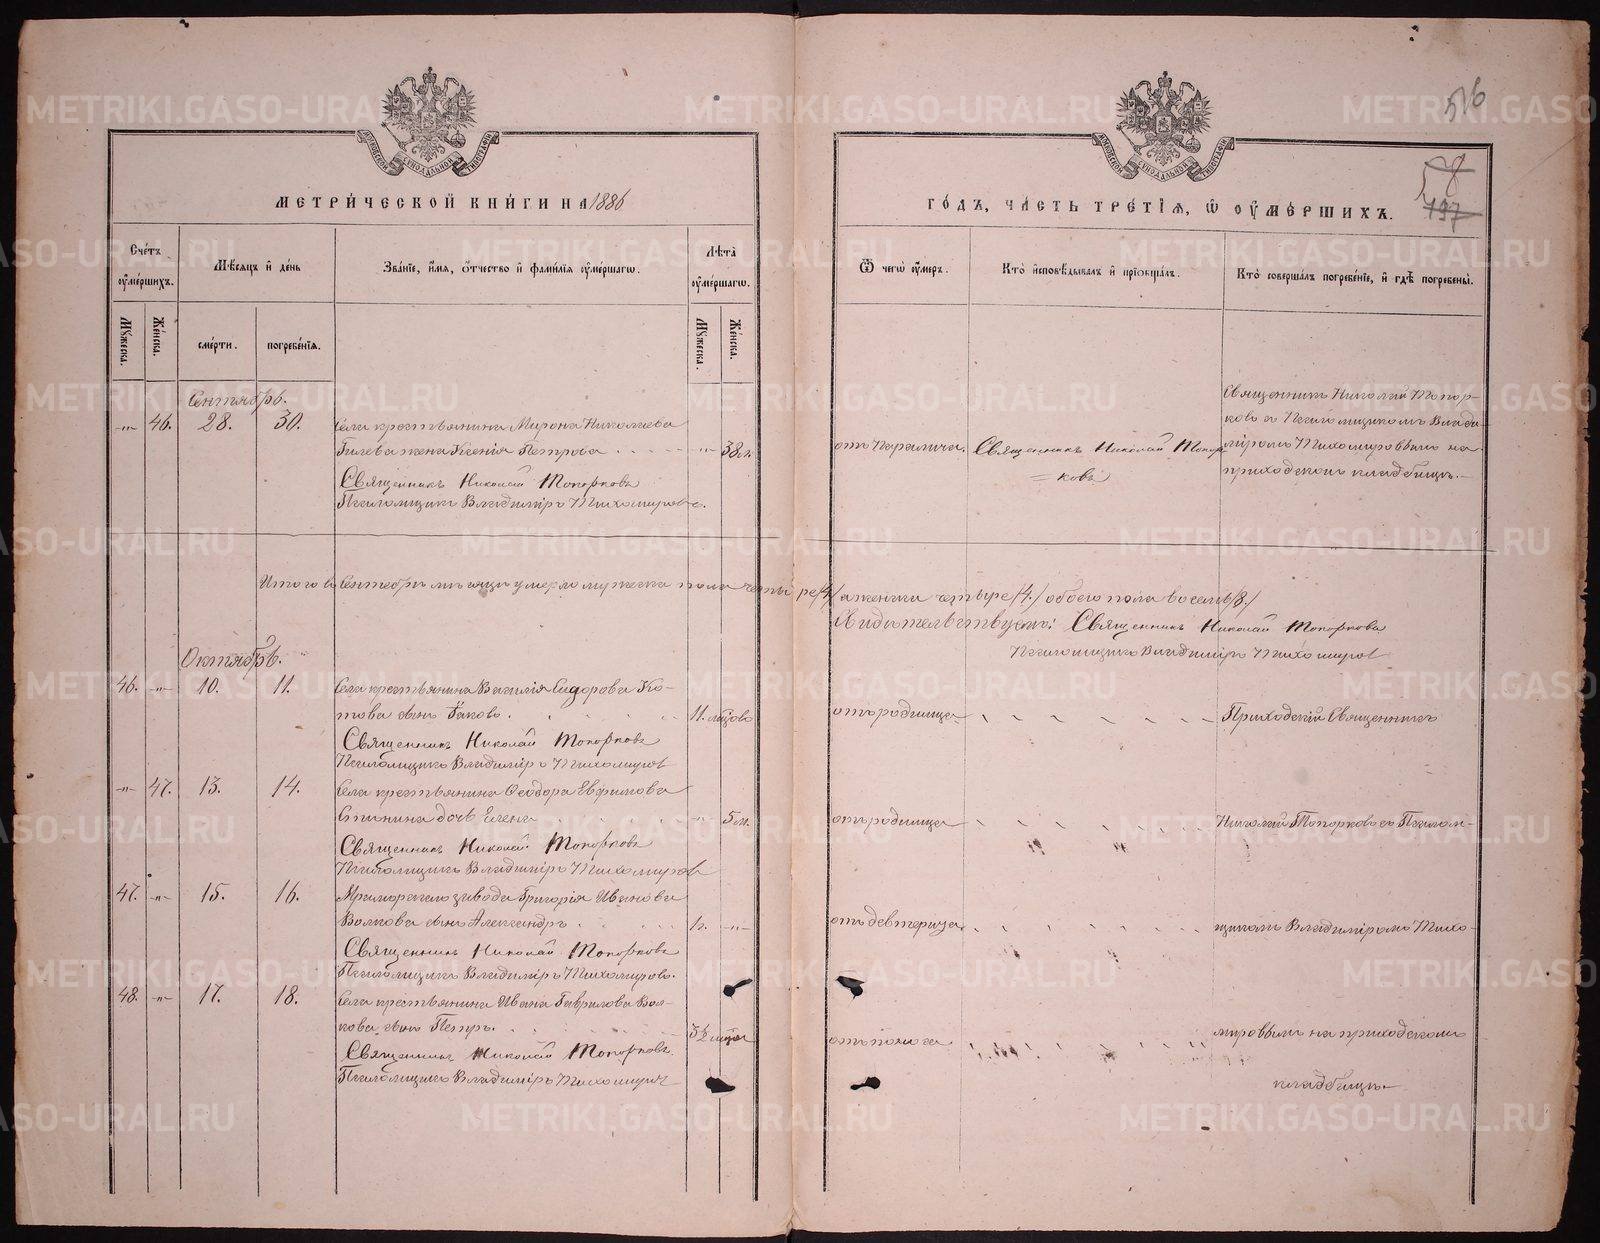 516
58
197
МЕТРИ́ЧЕСКОЙ КНИ́ГИ НА 1886
ГО́ДЪ, ЧА́СТЬ ТРЕ́ТІЯ, Ѡ ОУ҆МЕ́РШИХЪ.
Сче́тъ оу҆ме́ршихъ.
Мѣ́сяцъ и҆ де́нь
Зва́ніе, и҆́мя, ѻ҆́тчество и҆ фами́лія оу҆ме́ршагѡ.
Лѣ́та оу҆ме́ршагѡ.
Ѿ чегѡ̀ оу҆́меръ.
Кто̀ и҆сповѣ́дывалъ и҆ прїѡбща́лъ.
Кто̀ соверша́лъ погребе́ніе, и҆ гдѣ̀ погребены̀.
Му́жеска.
Же́нска.
сме́рти.
погребе́нія.
Му́жеска.
Же́нска.
Сентябрь.
-"- 46. 28. 30. Села крестьянина Мирона Николаева
Гилева жена Ксенія Петрова -"- 38 л.
Священникъ Николай Топорковъ
Псаломщикъ Владиміръ Тихомировъ.
отъ паралича.
Священникъ Николай Топор=
=ковъ
Священникъ Николай Топор-
ковъ съ Псаломщикомъ Влади-
міромъ Тихомировымъ на
приходскомъ кладбищѣ.
Итого въ Сентябрѣ мѣсяцѣ умерло мужеска пола четыре /4/ а женска четыре /4./ обоего пола восемь /8./
Свидѣтельствуемъ: Священникъ Николай Топорковъ
Псаломщикъ Владиміръ Тихомировъ
Октябрь.
46. -"- 10. 11. Села крестьянина Василія Сидорова Ко-
това сынъ Іаковъ. 11. мѣсяцовъ
Священникъ Николай Топорковъ
Псаломщикъ Владиміръ Тихомировъ
отъ родимца
Приходскій Священникъ
-"- 47. 13. 14. Села крестьянина Ѳеодора Евфимова
дочь Елена -"- 5 м.
Священникъ Николай Топорковъ
Псаломщикъ Владиміръ Тихомировъ
отъ родимца
Николай Топорковъ съ Псалом-
47. -"- 15. 16. завода Григорія Иванова
Волкова сынъ Александръ 1 г. -"-
Священникъ Николай Топорковъ
Псаломщикъ Владиміръ Тихомировъ.
отъ
щикомъ Владиміромъ Тихо-
48. -"- 17. 18. Села крестьянина Ивана Гаврилова Вол-
кова сынъ Петръ. 3½ мѣсяца
Священникъ Николай Топорковъ.
Псаломщикъ Владиміръ Тихомировъ
отъ поноса
мировымъ на приходскомъ
кладбищѣ
METRIKI.GASO-URAL.RU